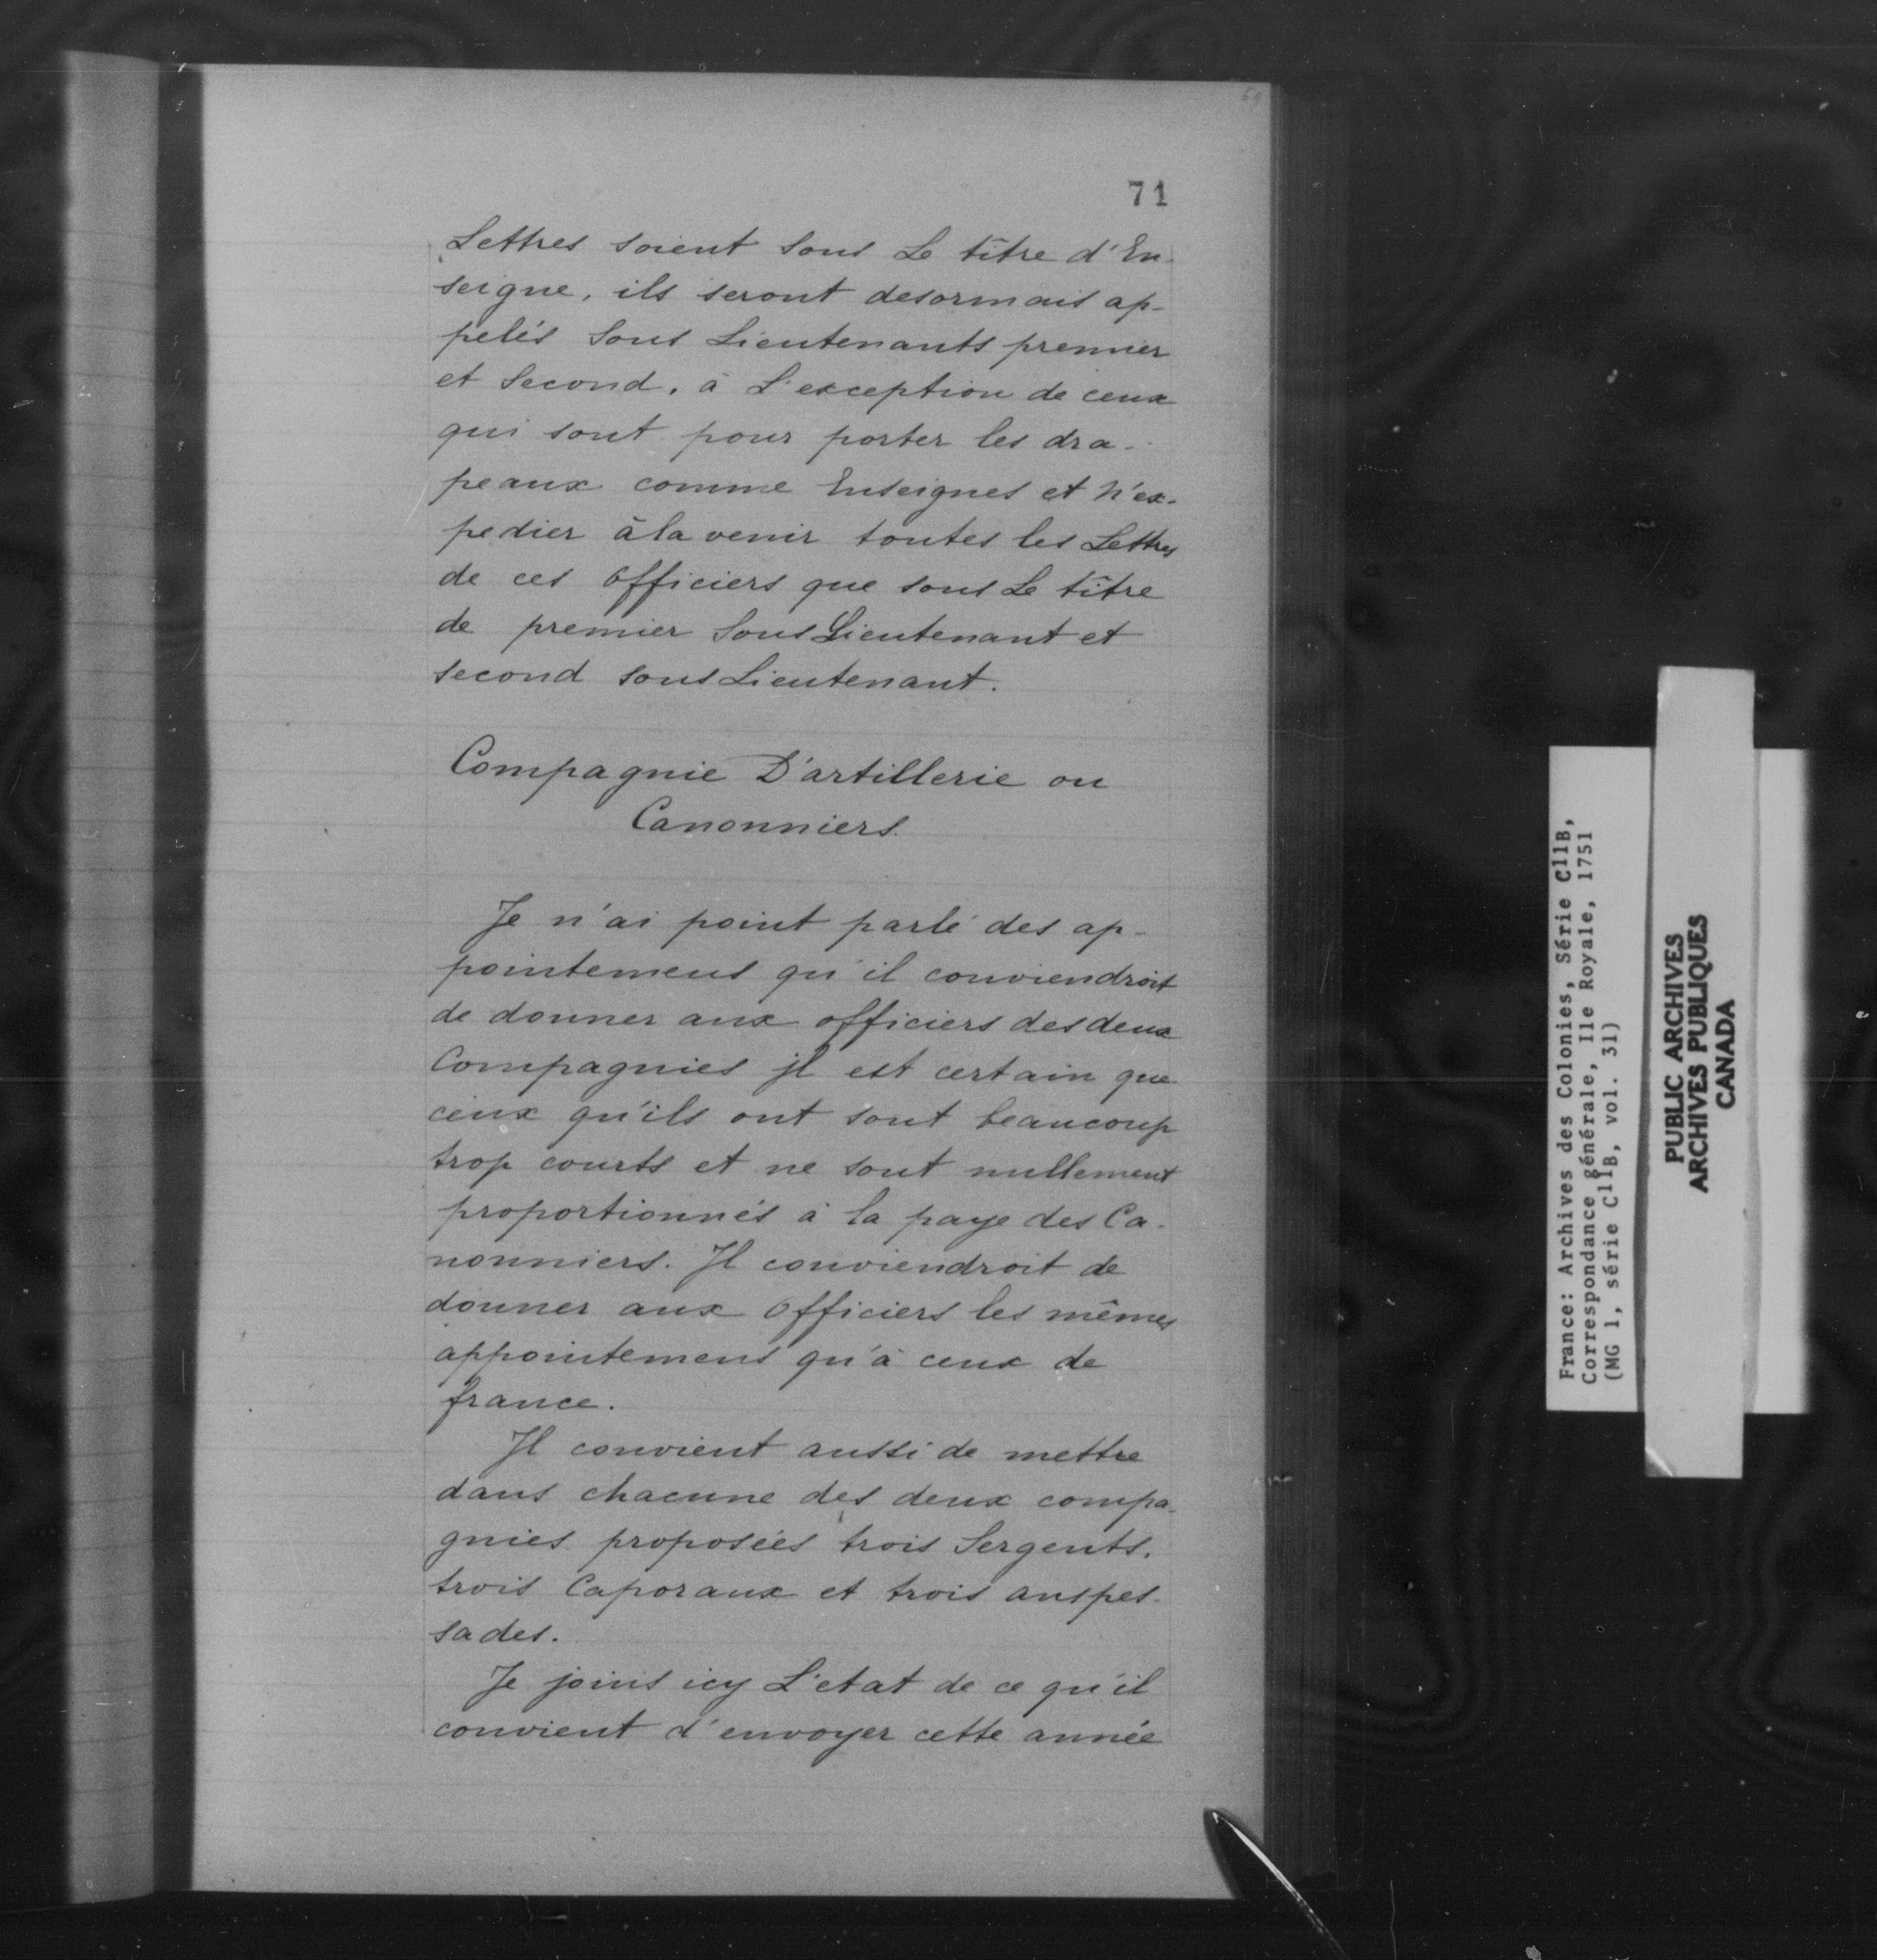 69
71
Lettres soient sous Le tître d'En-
seigne, ils seront desormais ap-
pelés Sous Lieutenants premier
et Second, à L'exception de ceux
qui sont pour porter les dra-
peaux comme Enseignes et N'ex-
pedier à la venir toutes les Lettres
de ces Officiers que sous Le tître
de premier Sous Lieutenant et
second sous Lieutenant.
Compagnie D'artillerie ou
Canonniers.
Je n'ai point parlé des ap-
pointemens qu'il conviendroit
de donner aux officiers des deux
Compagnies jl est certain que
ceux qu'ils ont sont beaucoup
trop courts et ne sont nullement
proportionnés à la paye des Ca-
nonniers. Jl conviendroit de
donner aux Officiers les mêmes
appointemens qu'à ceux de
france.
Jl convient aussi de mettre
dans chacune des deux compa-
gnies proposées trois Sergents,
trois Caporaux et trois anspes-
sades.
Je joins icy L'etat de ce qu'il
convient d'envoyer cette année
France: Archives des Colonies, Série C11B,
Correspondance générale, Ile Royale, 1751
(MG 1, série C11B, vol. 31)
PUBLIC ARCHIVES
ARCHIVES PUBLIQUES
CANADA